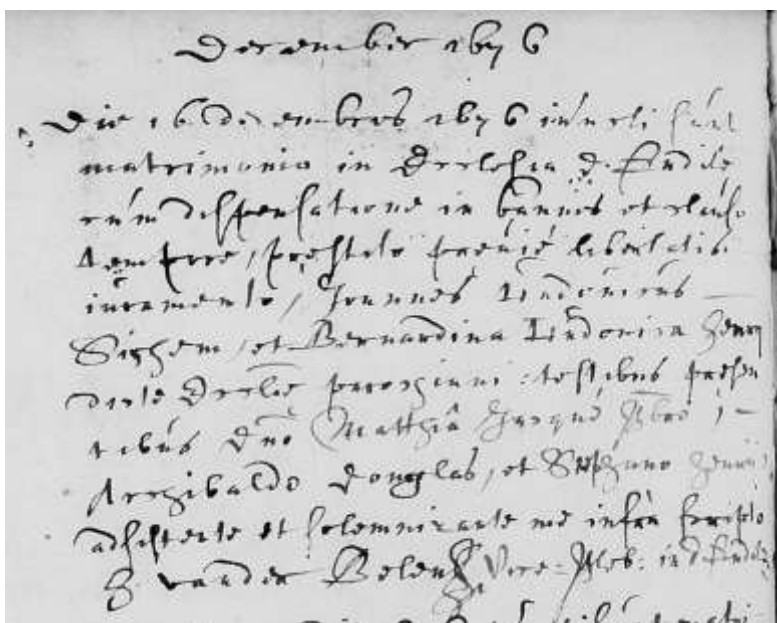 December 1676
Die 16 decembris 1676 iuncti sunt
matrimonio in Ecclesia d. Eind
cum dispensatione in bannis et clauso
tempore, prestito previe libertatis
iuramento, Joannes Ludovicus
Sighem, et Bernardina Ludovica
dicte Ecclie parochiani: testibus presen
tibus dno Matthia Jacque pbro,
Archibaldo Douglas, et Stephano
adsistente et solemnizante me infra scripto
vander Belen Vice-Pleb: in d.